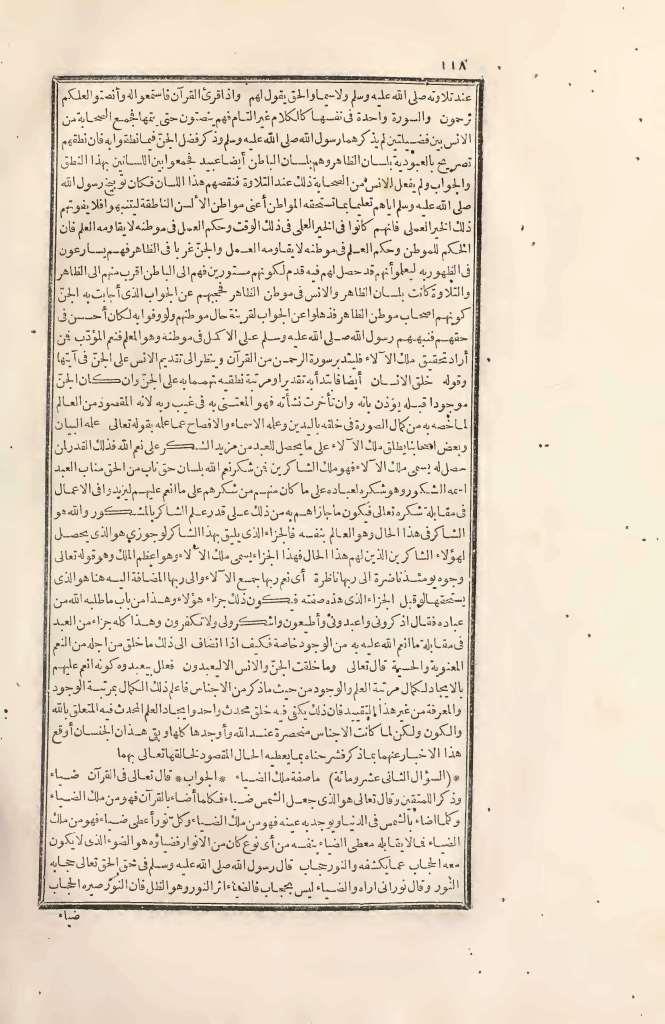 ١١٨
عند تلاوته صلى الله عليه وسلم ولا سيما والحق يقول لهم واذا قرئ القرآن فاستمعوا له وأنصتوا لعلكم
ترحمون والسورة واحدة فى نفسها كالكلام غير التام فهم ينصتون حتى يتمها فجمع الصحابة من
الانس بين فضيلتين لم يذكرهما رسول الله صلى الله عليه وسلم وذكر فضل الجن فيما نطقوا به فان نطقهم
تصريح بالعبودية بلسان الظاهر وهم بلسان الباطن أيضا عبيد فجمعوا بين اللسانين بهذا النطق
والجواب ولم يفعل الانس من الصحابة ذلك عند التلاوة فنقصهم هذا اللسان فكان توبيخ رسول الله
صلى الله عليه وسلم اياهم تعليما بما تستحقه المواطن أعنى مواطن الالسن الناطقة ليتنبهوا فلا يفوتهم
ذلك الخير العملى فانهم كانوا فى الخير العلمى فى ذلك الوقت وحكم العمل فى موطنه لا يقاومه العلم فان
الحكم للموطن وحكم العلم فى موطنه لا يقاومه العمل والجن غربا فى الظاهر فهم يسارعون
فى الظهور به ليعلموا أنهم قد حصل لهم فيه قدم لكونهم مستورين فهم الى الباطن اقرب منهم الى الظاهر
والتلاوة كانت بلسان الظاهر والانس فى موطن الظاهر فحجبهم عن الجواب الذى أجابت به الجن
كونهم اصحاب موطن الظاهر فذهلوا عن الجواب لقرينة حال موطنهم ولو وفوا به لكان أحسن فى
حقهم فنبههم رسول الله صلى الله عليه وسلم على الاكمل فى موطنه وهو المعلم فنعم المؤدب فمن
أراد تحقيق ملك الآلاء فليتدبر سورة الرحمن من القرآن وينظر الى تقديم الانس على الجن فى آيتها
وقوله خلق الانسان أيضا فابتدأ به تقديرا ومرتبة نطقية تهمما به على الجن وان كان الجن
موجودا قبله يؤذن بانه وان تأخرت نشأته فهو المعتنى به فى غيب ربه لانه المقصود من العالم
لما خصه به من كمال الصورة فى خلقه باليدين وعلمه الاسماء والافصاح عما علمه بقوله تعالى علمه البيان
وبعض أصحابنا يطلق ملك الآلاء على ما يحصل للعبد من مزيد الشكر على نعم الله فذلك القدر لمن
حصل له يسمى ملك الآلاء فهو ملك الشاكرين فمن شكر نعم الله بلسان حق ناب من الحق مناب العبد
اسمه الشكور وهو شكره لعباده على ما كان منهم من شكرهم على ما انعم عليهم ليزيدوا فى الاعمال
فى مقابلة شكره تعالى فيكون ما جازاهم به من ذلك على قدر علم الشاكر بالمشكور والله هو
الشاكر فى هذا الحال وهو العالم بنفسه فالجزاء الذى يليق بهذا الشاكر لو جوزى هو الذى يحصل
لهؤلاء الشاكرين الذين لهم هذا الحال فهذا الجزاء يسمى ملك الآلاء وهو اعظم الملك وهو قوله تعالى
وجوه يومئذ ناضرة الى ربها ناظرة أى نعم ربها جميع الآلاء والى ربها المضافة اليه هنا هو الذى
يستحقها لو قبل الجزاء الذى هذه صفته فيكون ذلك جزاء هؤلاء وهذا من باب ما طلبه الله من
عباده فقال اذكرونى واعبدونى وأطيعون واشكروا لى ولا تكفرون وهذا كله جزاء من العبد
فى مقابلة ما انعم الله عليه به من الوجود خاصة فكيف اذا انضاف الى ذلك ما خلق من اجله من النعم
المعنوية والحسية قال تعالى وما خلقت الجن والانس الا ليعبدون فعلل ليعبدوه كونه انعم عليهم
بالايجاد لكمال مرتبة العلم والوجود من حيث ما ذكر من الاجناس فاعلم ذلك لكمال بمرتبة الوجود
والمعرفة من غير هذا التقييد فان ذلك يكفى فيه خلق محدث واحد وايجاد العلم المحدث فيه المتعلق بالله
والكون ولكن لما كانت الاجناس منحصرة عند الله وأوجدها كلها وبقى هذان الجنسان أوقع
هذا الاخبار عنهما بما ذكر فشرحناه بما يعطيه الحال المقصود لخالقها تعالى بهما
* (السؤال الثانى عشر ومائة) ما صفة ملك الضياء * الجواب * قال تعالى فى القرآن ضياء
وذكرا للمتقين وقال تعالى هو الذى جعل الشمس ضياء فكلما أضاء بالقرآن فهو من ملك الضياء
وكلما اضاء بالشمس فى الدنيا ويوجد به عينه فهو من ملك الضياء وكل نور أعطى ضياء فهو من ملك
الضياء مما لا يقابله معطى الضياء بنفسه من أى نوع كان من الانوار فضياؤه هو الضوء الذى لا يكون
معه الحجاب عما يكشفه والنور حجاب قال رسول الله صلى الله عليه وسلم فى حق الحق تعالى حجابه
النور وقال نورانى اراه والضياء ليس بحجاب فالضياء اثر النور وهو الظل فان النور صيره الحجاب
ضياء